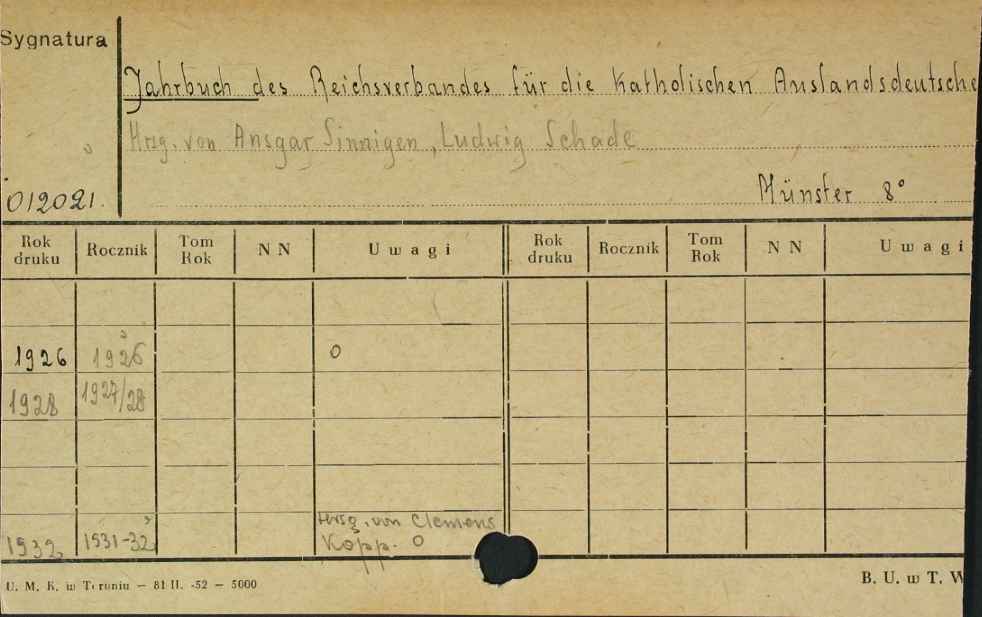 Sygnatura
Jahrbuch des Reichsverbandes für die Katholischen Auslandsdeutsche
Hrsg. von Ansgar Sinnigen, Ludwig Schade
012021.
Münster 8°
Rok druku Rocznik Tom Rok NN Uwagi Rok druku Rocznik Tom Rok NN Uwagi
1926 1926 0
1928 1927/28
Hrsg. von Clemens
1932 1931-32 Kopp. 0
U. M. K. w Toruniu — 81 II. -52 — 5000
B. U. w T. W